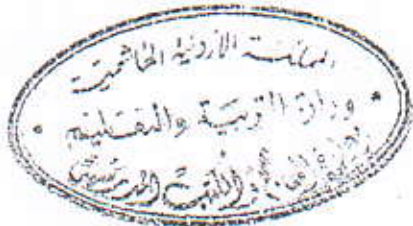 المملكة الأردنية الهاشمية
وزارة التربية والتعليم
الكتب المدرسية